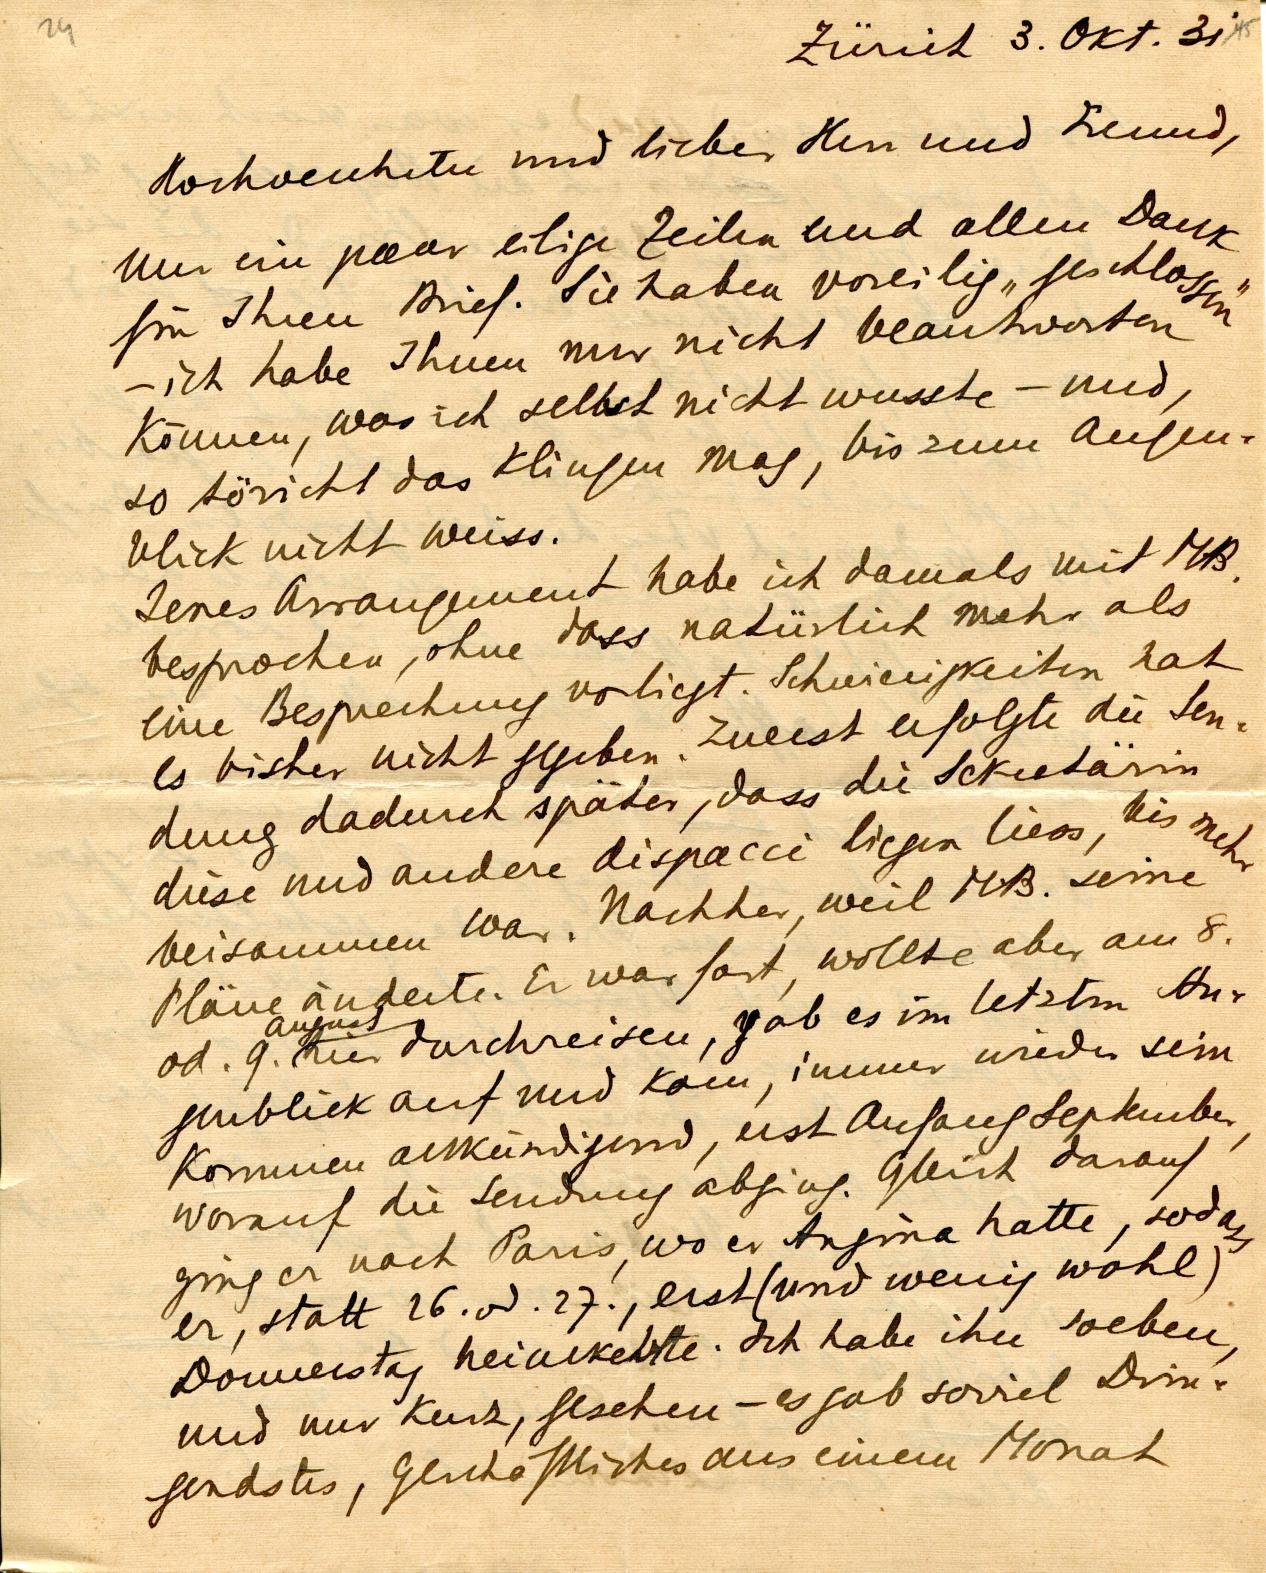 24
Zürich 3. Okt. 31
45
Hochverehrter und lieber Herr und Freund,
Nur ein paar eilige Zeilen und allen Dank
für Ihren Brief. Sie haben voreilig „geschlossen"
– ich habe Ihnen nur nicht beantworten
können, was ich selbst nicht wusste – und,
so töricht das klingen mag, bis zum Augen-
blick nicht weiss.
Jenes Arrangement habe ich damals mit MB.
besprochen, ohne dass natürlich mehr als
eine Besprechung vorliegt. Schwierigkeiten hat
es bisher nicht gegeben. Zuerst erfolgte die Sen-
dung dadurch später, dass die Sekretärin
diese und andere dispacci liegen liess, bis mehr
beisammen war. Nachher, weil MB. seine
Pläne änderte. Er war fort, wollte aber am 8.
august
od. 9. hier durchreisen, gab es im letzten Au-
genblick auf und kam, immer wieder sein
Kommen ankündigend, erst Anfang September,
worauf die Sendung abging. Gleich darauf
ging er nach Paris, wo er Angina hatte, sodass
er, statt 26. od. 27., erst (und wenig wohl)
Donnerstag heimkehrte. Ich habe ihn soeben,
und nur kurz, gesehen – es gab soviel Drin-
gendstes, Geschäftliches aus einem Monat